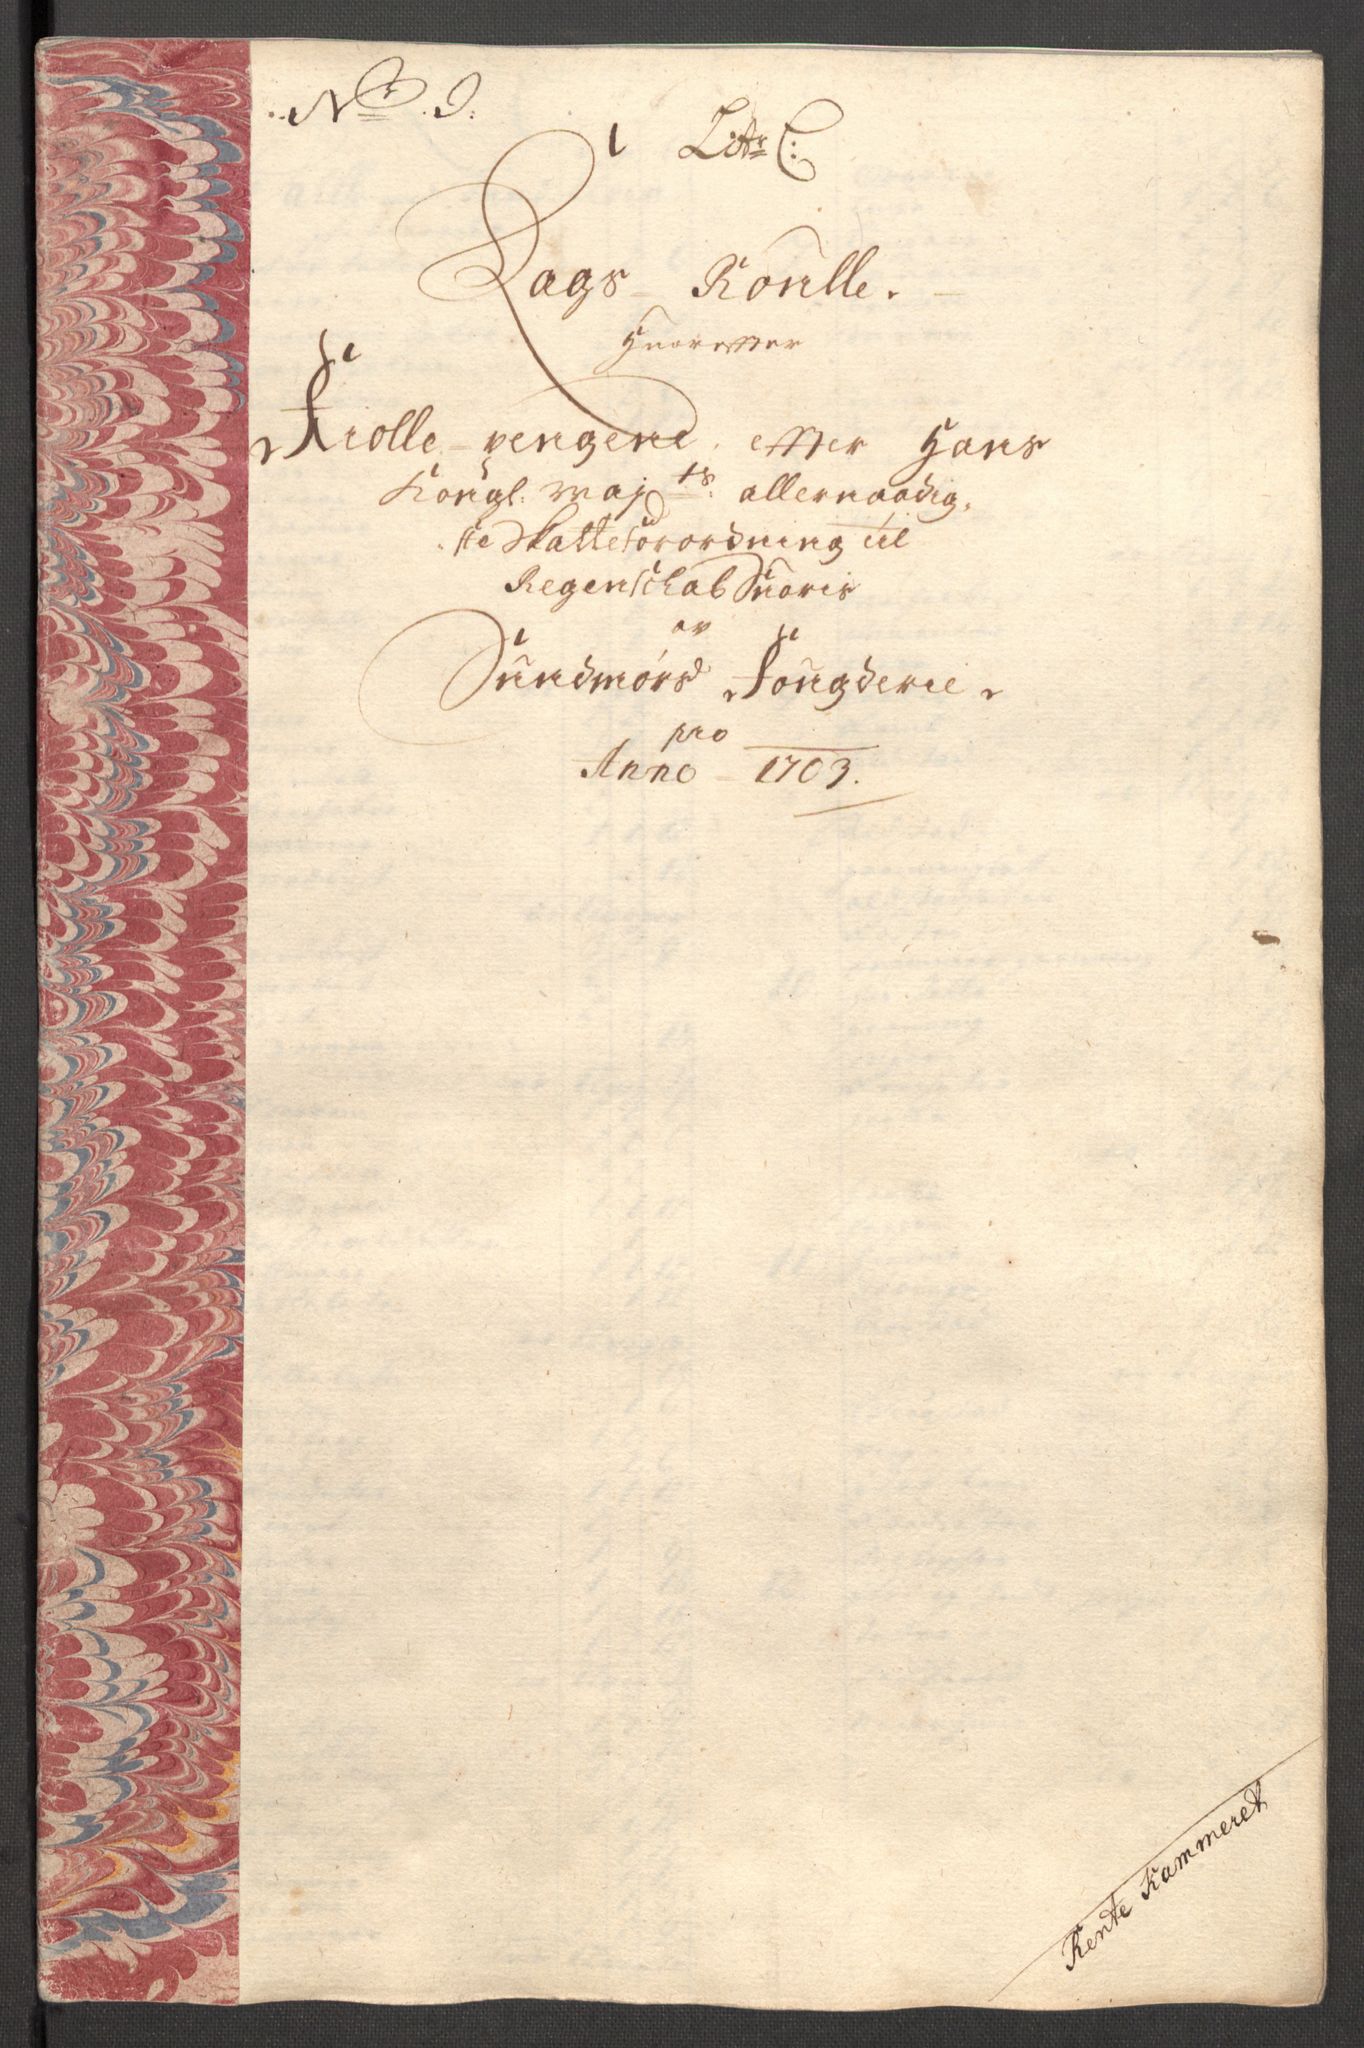 No 9.
Litr C:
Lags Roulle.
Huorefter
Skolle-pengene efter Hans
Kongl: Mayts: allernaadig,
ste Skatteforordning til
Regenschab Suaris
av
Sundmørs Fougderie.
pro
Anno 1703.
Rente Kammeret